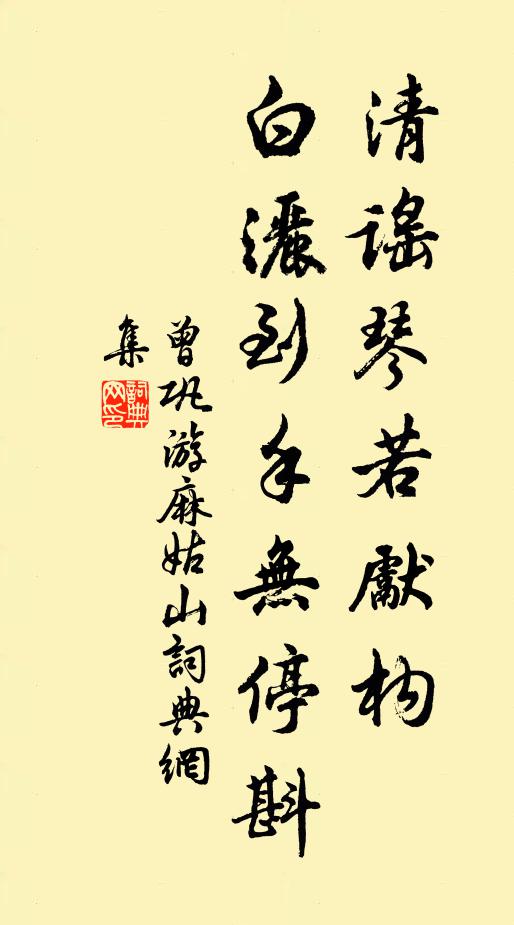 清謠琴若獻杓
白灑到手無停斟
曾巩游麻姑山詞典網
集
詞典網印